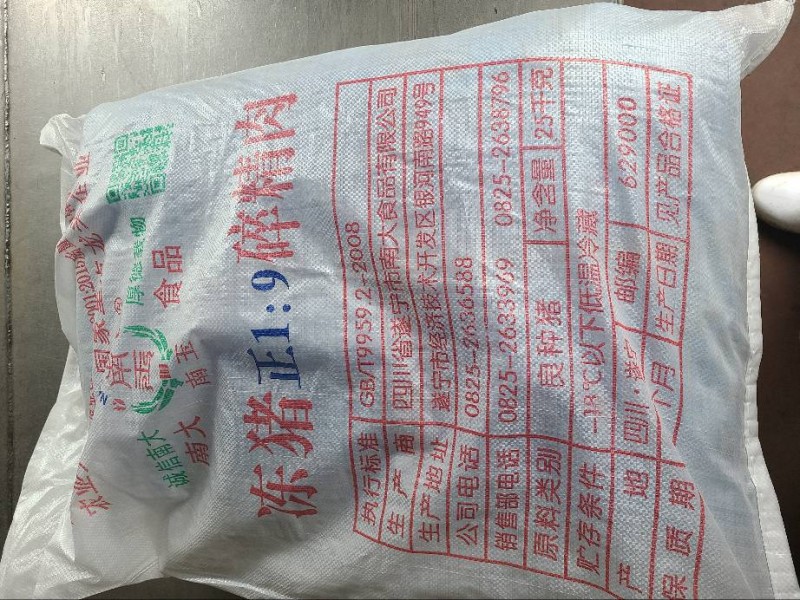 诚信南大 厚德载物
南大 南玉 食品
冻猪正1:9碎精肉
执行标准 GB/T9959.2-2008
生产商 四川省遂宁市南大食品有限公司
生产地址 遂宁市经济技术开发区银河南路949号
公司电话 0825-2636588
销售部电话 0825-2633969 0825-2638796
原料类别 良种猪 净含量 25千克
贮存条件 -18℃以下低温冷藏
产地 四川·遂宁 邮编 629000
保质期 月 生产日期 见产品合格证